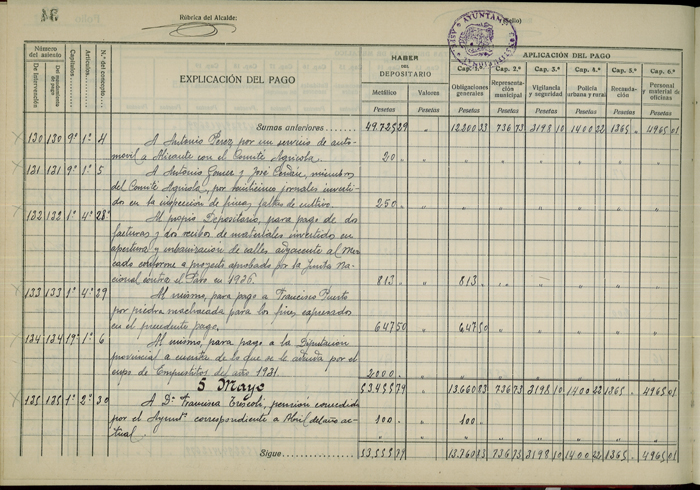 34
Rúbrica del Alcalde:
Número del asiento
De intervención
Del mandamiento de pago
Capítulos
Artículos
N.º del concepto
EXPLICACIÓN DEL PAGO
HABER DEL DEPOSITARIO
Metálico
Valores
Pesetas
Pesetas
APLICACIÓN DEL PAGO
Cap. 1.º
Cap. 2.º
Cap. 3.º
Cap. 4.º
Cap. 5.º
Cap. 6.º
Obligaciones generales
Representación municipal
Vigilancia y seguridad
Policía urbana y rural
Recaudación
Personal y material de oficinas
Pesetas
Pesetas
Pesetas
Pesetas
Pesetas
Pesetas
Sumas anteriores 49.725 29 " 12200 33 736 73 3198 10 1400 22 1365 " 4965 01
130 130 9º 1º 4 A Antonio Perez por un servicio de auto-
movil a Alicante con el Comité Agricola. 20
131 131 9º 1º 5 A Antonio Gomez y José miembros
del Comité Agricola, por jornales inverti-
dos en la inspección de fincas faltas de cultivo. 250
132 132 1º 4º 28 Al propio Depositario, para pago de dos
facturas y dos recibos de materiales invertidos en
apertura y urbanización de calles adyacente al Mer-
cado conforme a proyecto aprobado por la Junta Na-
cional contra el Paro en 1936. 813 813
133 133 1º 4º 29 Al mismo, para pago a Francisco Puerto
por piedra machacada para los fines expresados
en el precedente pago. 647 50 647 50
134 134 19º 1º 6 Al mismo, para pago a la Diputacion
provincial a cuenta de lo que se le adeuda por el
cupo de Compustitos del año 1931. 2000
5 Mayo 53455 79 " 13660 83 736 73 3198 10 1400 22 1365 " 4965 01
135 135 1º 2º 30 A Dª Francisca Trescoli, pensión concedida
por el Ayuntº correspondiente a Abril del año ac-
tual. 100 100
Sigue 53.555 79 13760 83 736 73 3198 10 1400 22 1365 " 4965 01